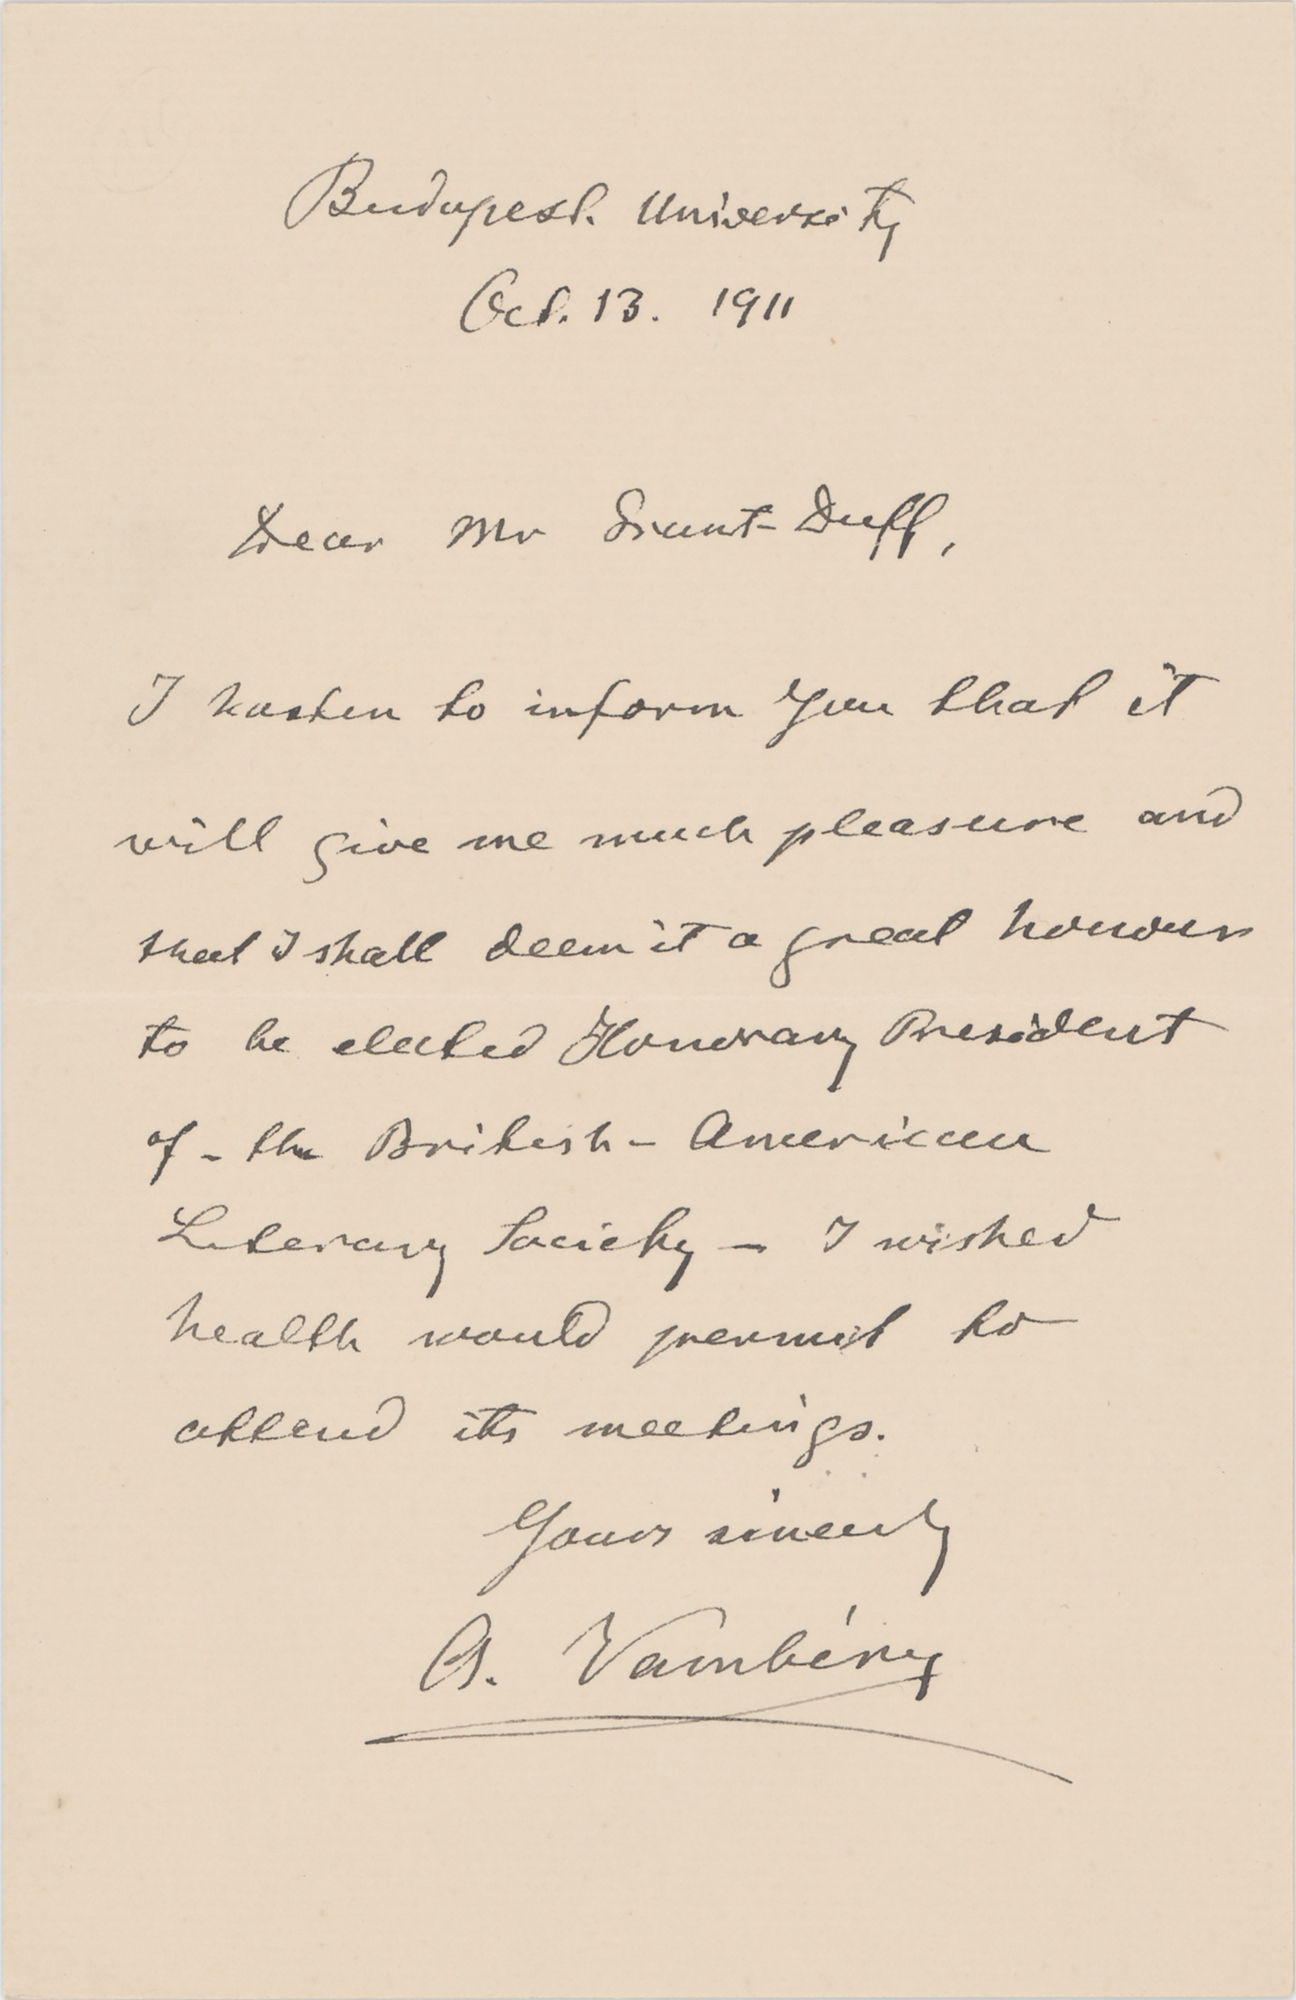 Budapest. University
Oct. 13. 1911
Dear Mr Grant-Duff,
I hasten to inform you that it
will give me much pleasure and
that I shall deem it a great honour
to be elected Honorary President
of - the British - American
Literary Society - I wished
health would permit to
attend its meetings.
Yours sincerely
A. Vambéry